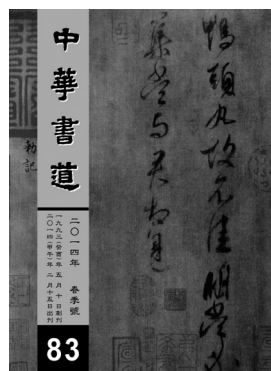 中華書道
二〇一四年 春季號
一九九三(癸酉)年 五 月 十 日創刊
二〇一四(甲午)年 二 月十五日出刊
83
鴨頭丸故不佳明當必
集當與君相見
勅記